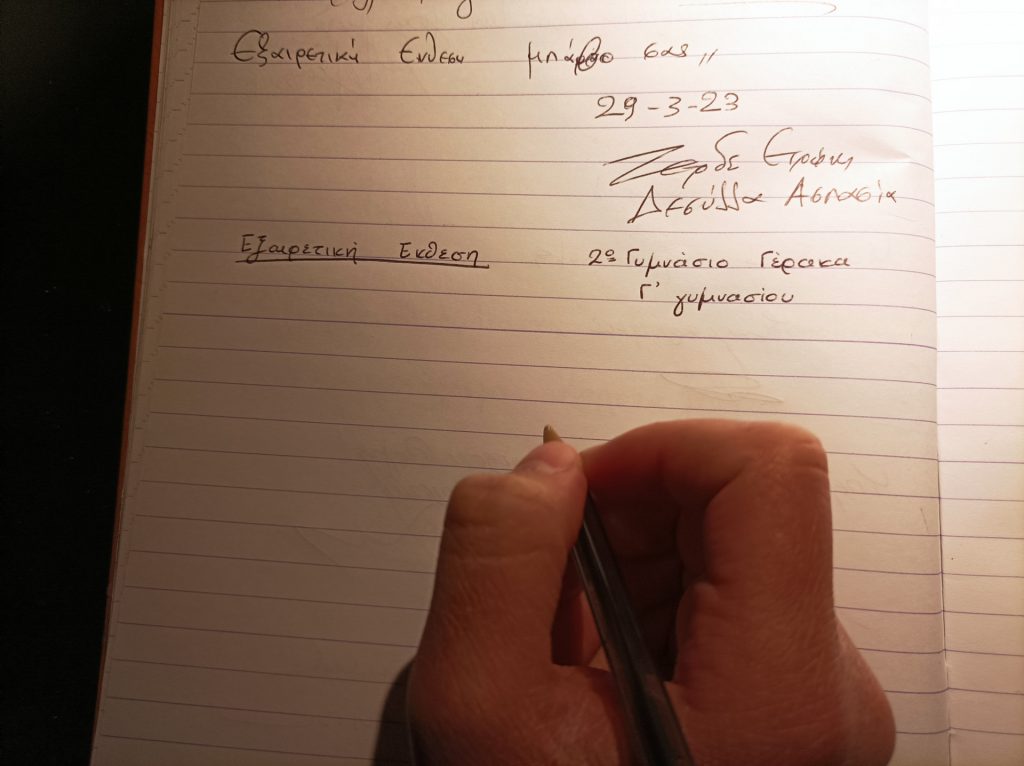 Εξαιρετική Έκθεση μπράβο σας,,
29-3-23
Ζερδέ
Δεσύλλα Ασπασία
Εξαιρετική Εκθεση
2ο Γυμνάσιο Γέρακα
Γ' γυμνασίου